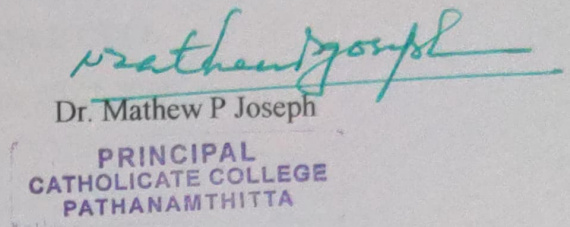 Mathew P Joseph
Dr. Mathew P Joseph
PRINCIPAL
CATHOLICATE COLLEGE
PATHANAMTHITTA